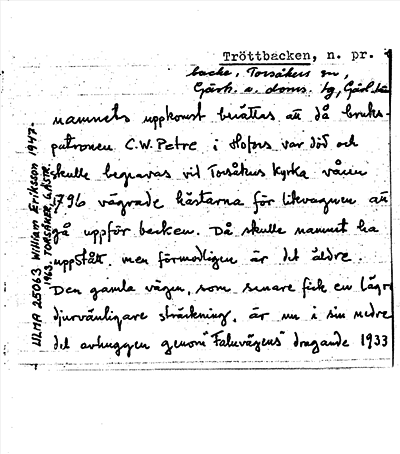 Tröttbacken, n. pr.
backe, Torsåkers sn,
Gästr. ö. doms. tg, Gävl. län
namnets uppkomst berättas att då bruks-
patronen C.W. Petre i Hofors var död och
skulle begravas vid Torsåkers kyrka våren
1796 vägrade hästarna för likvagnen att
gå uppför backen. Då skulle namnet ha
uppstått, men förmodligen är det äldre.
Den gamla vägen, som senare fick en lägre
djurvänligare sträckning, är nu i sin nedre
del avhuggen genom "Faluvägens" dragande 1933
ULMA 25063 William Eriksson 1947-
1963. TORSÅKER, GÄSTR.